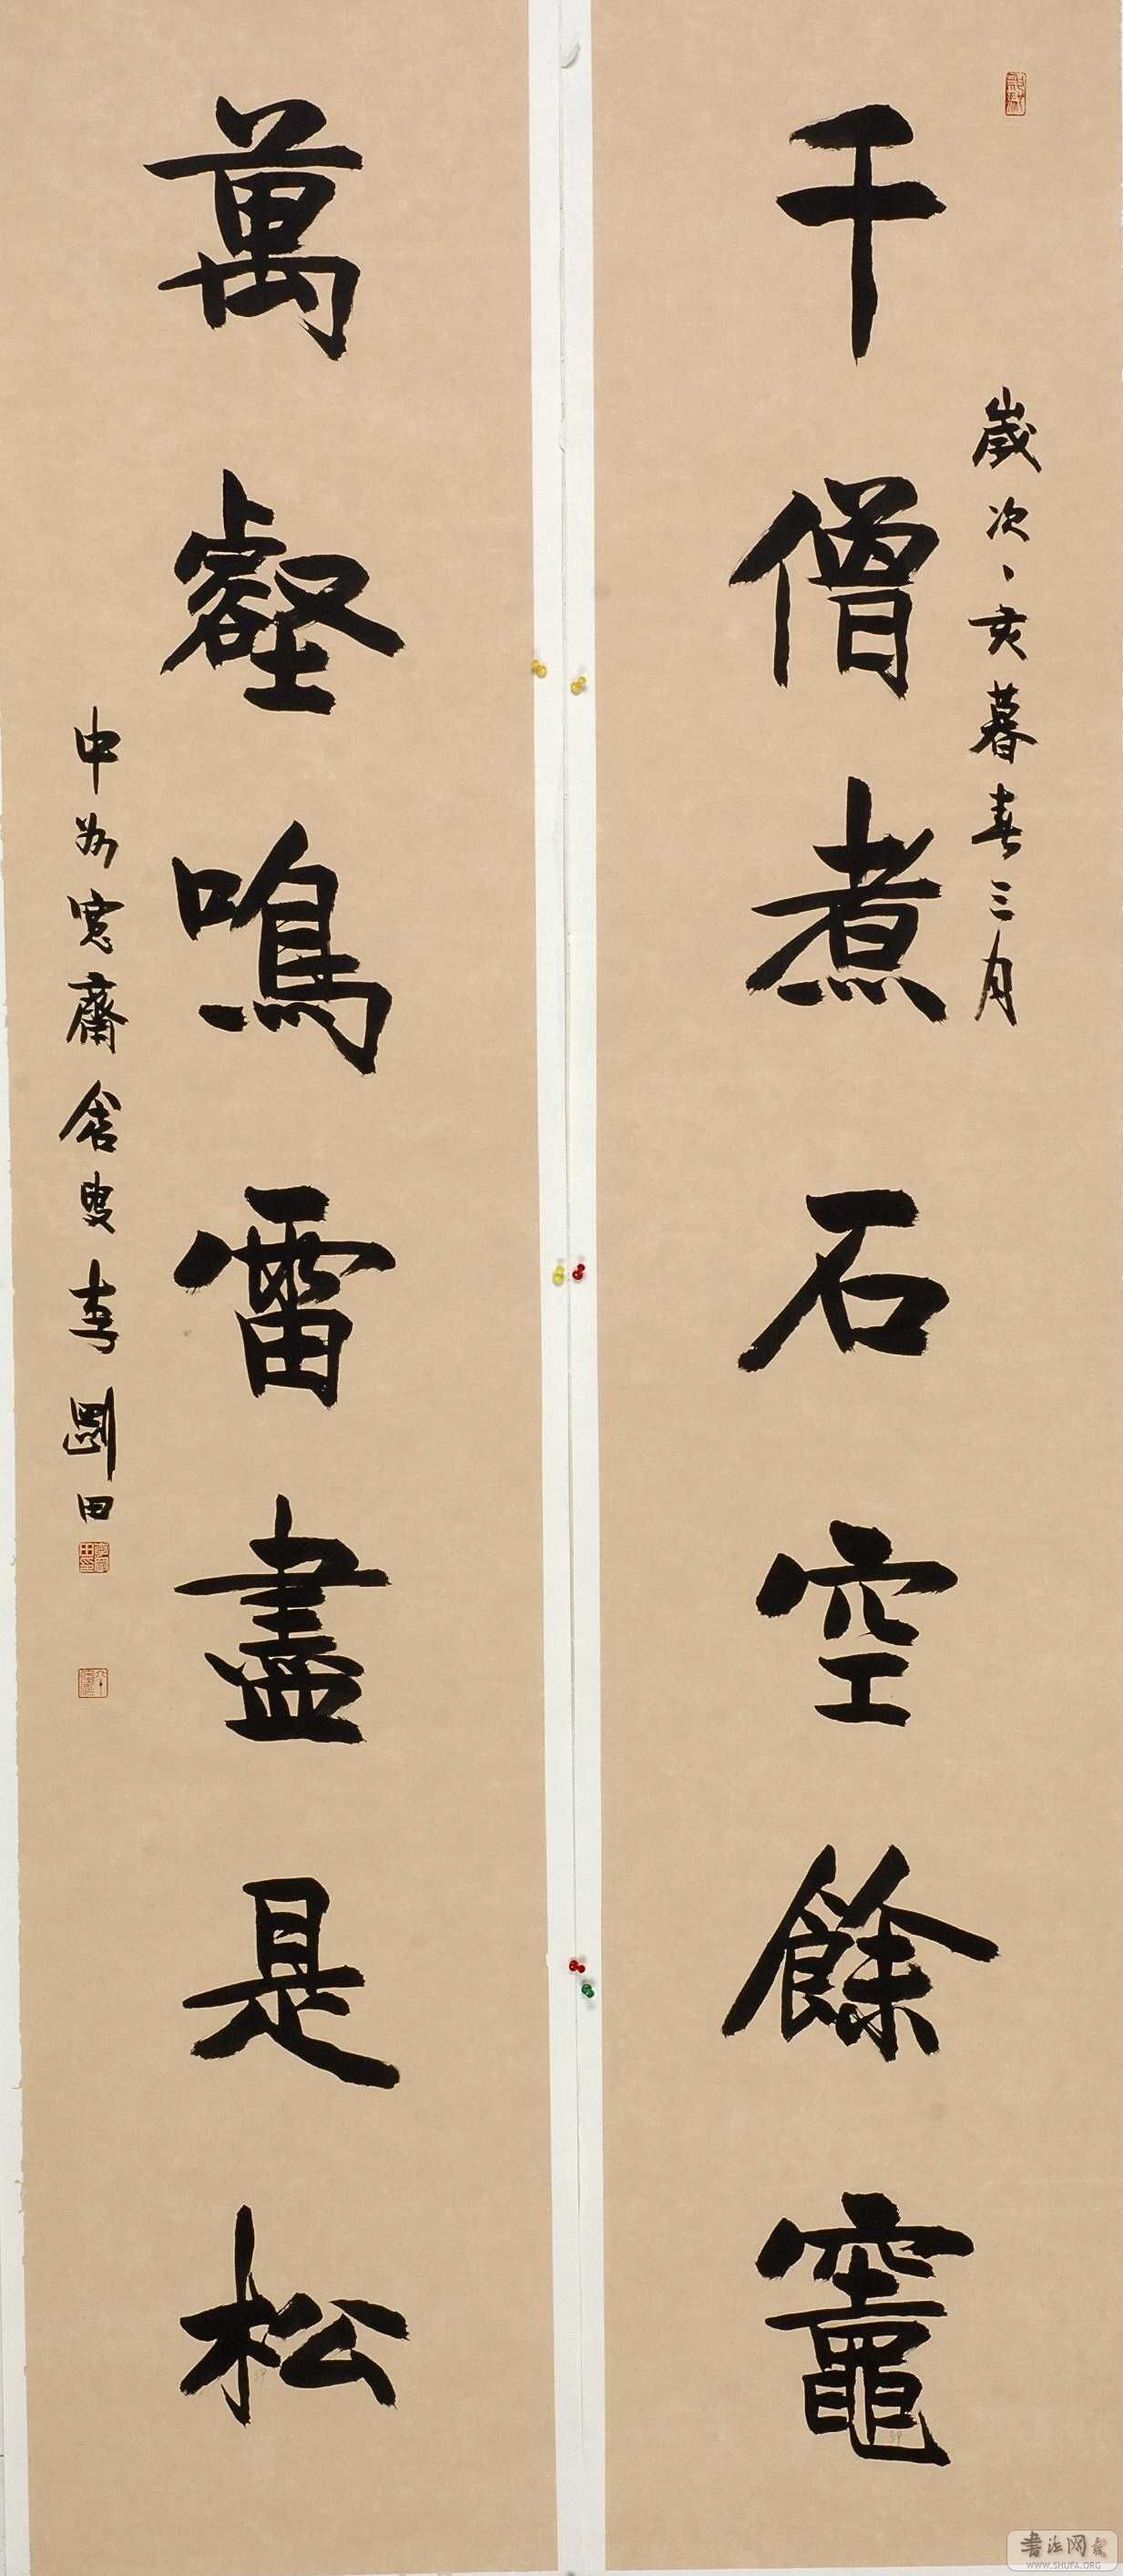 千僧煮石空餘竈
歲次丁亥暮春三月
萬壑鳴雷盡是松
中州寬齋舍叟李剛田
書法网
WWW.SHUFA.ORG